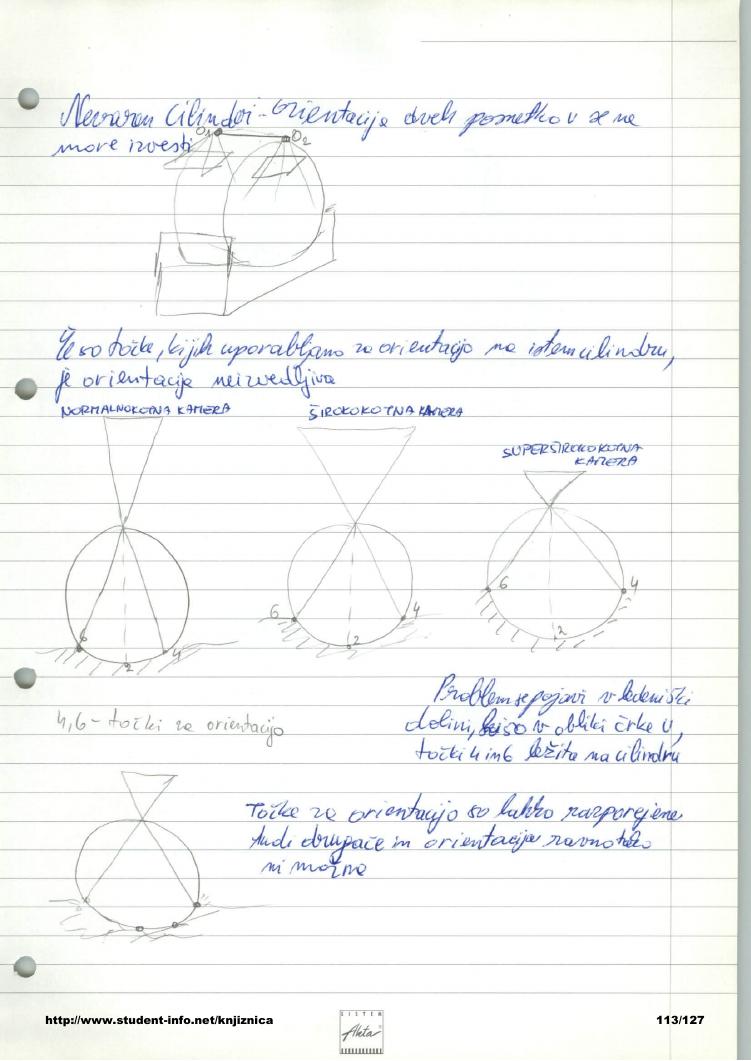 Nevaren cilinder - orientacija dveh posnetkov se ne
more izvesti
O1
O2
Če so točke, ki jih uporabljamo za orientacijo na istem cilindru,
je orientacija neizvedljiva
NORMALNOKOTNA KAMERA
ŠIROKOKOTNA KAMERA
SUPERŠIROKOKOTNA
KAMERA
6
2
4
6
2
4
6
2
4
4,6 - točki za orientacijo
Problem se pojavi v ledeniški
dolini, so v obliki črke U,
točki 4 in 6 ležita na cilindru
Točke za orientacijo so lahko razporejene
tudi drugače in orientacija ravno tako
ni možna
http://www.student-info.net/knjiznica
SISTEM
Akta
113/127